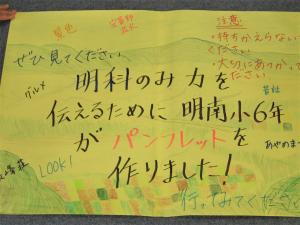 景色
安曇野
注意
・持ちかえらないでください
・大切にあつかってください
ぜひ見てください
グルメ
明科のみ力を
伝えるために明南小6年
が パンフレット を
作りました!
あやめま
LOOK!
行ってみてください